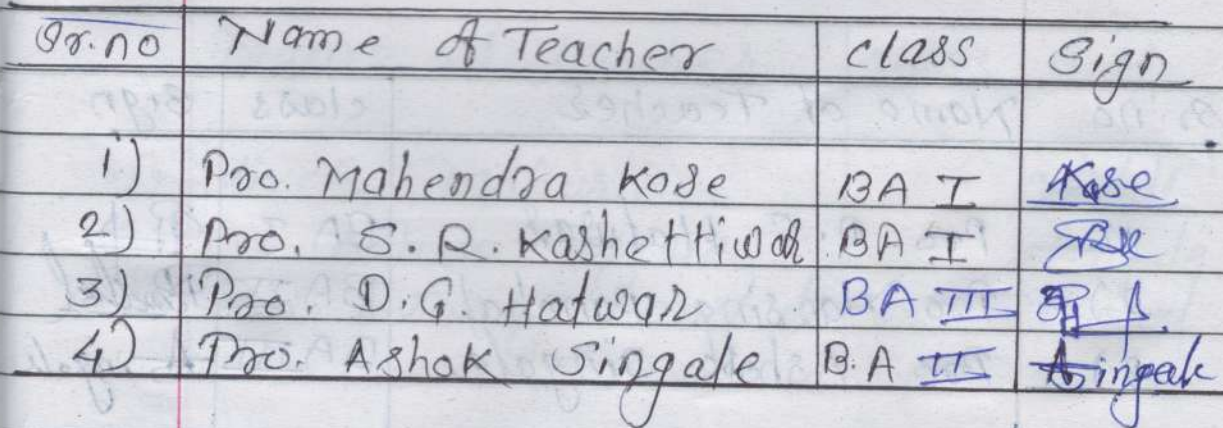 Sr.no Name of Teacher class Sign
1) Pro. Mahendra Kose BA I Kose
2) Pro. S. R. Kashettiwar BA I
3) Pro. D.G. Hatwar BA III
4) Pro. Ashok Singale B.A II